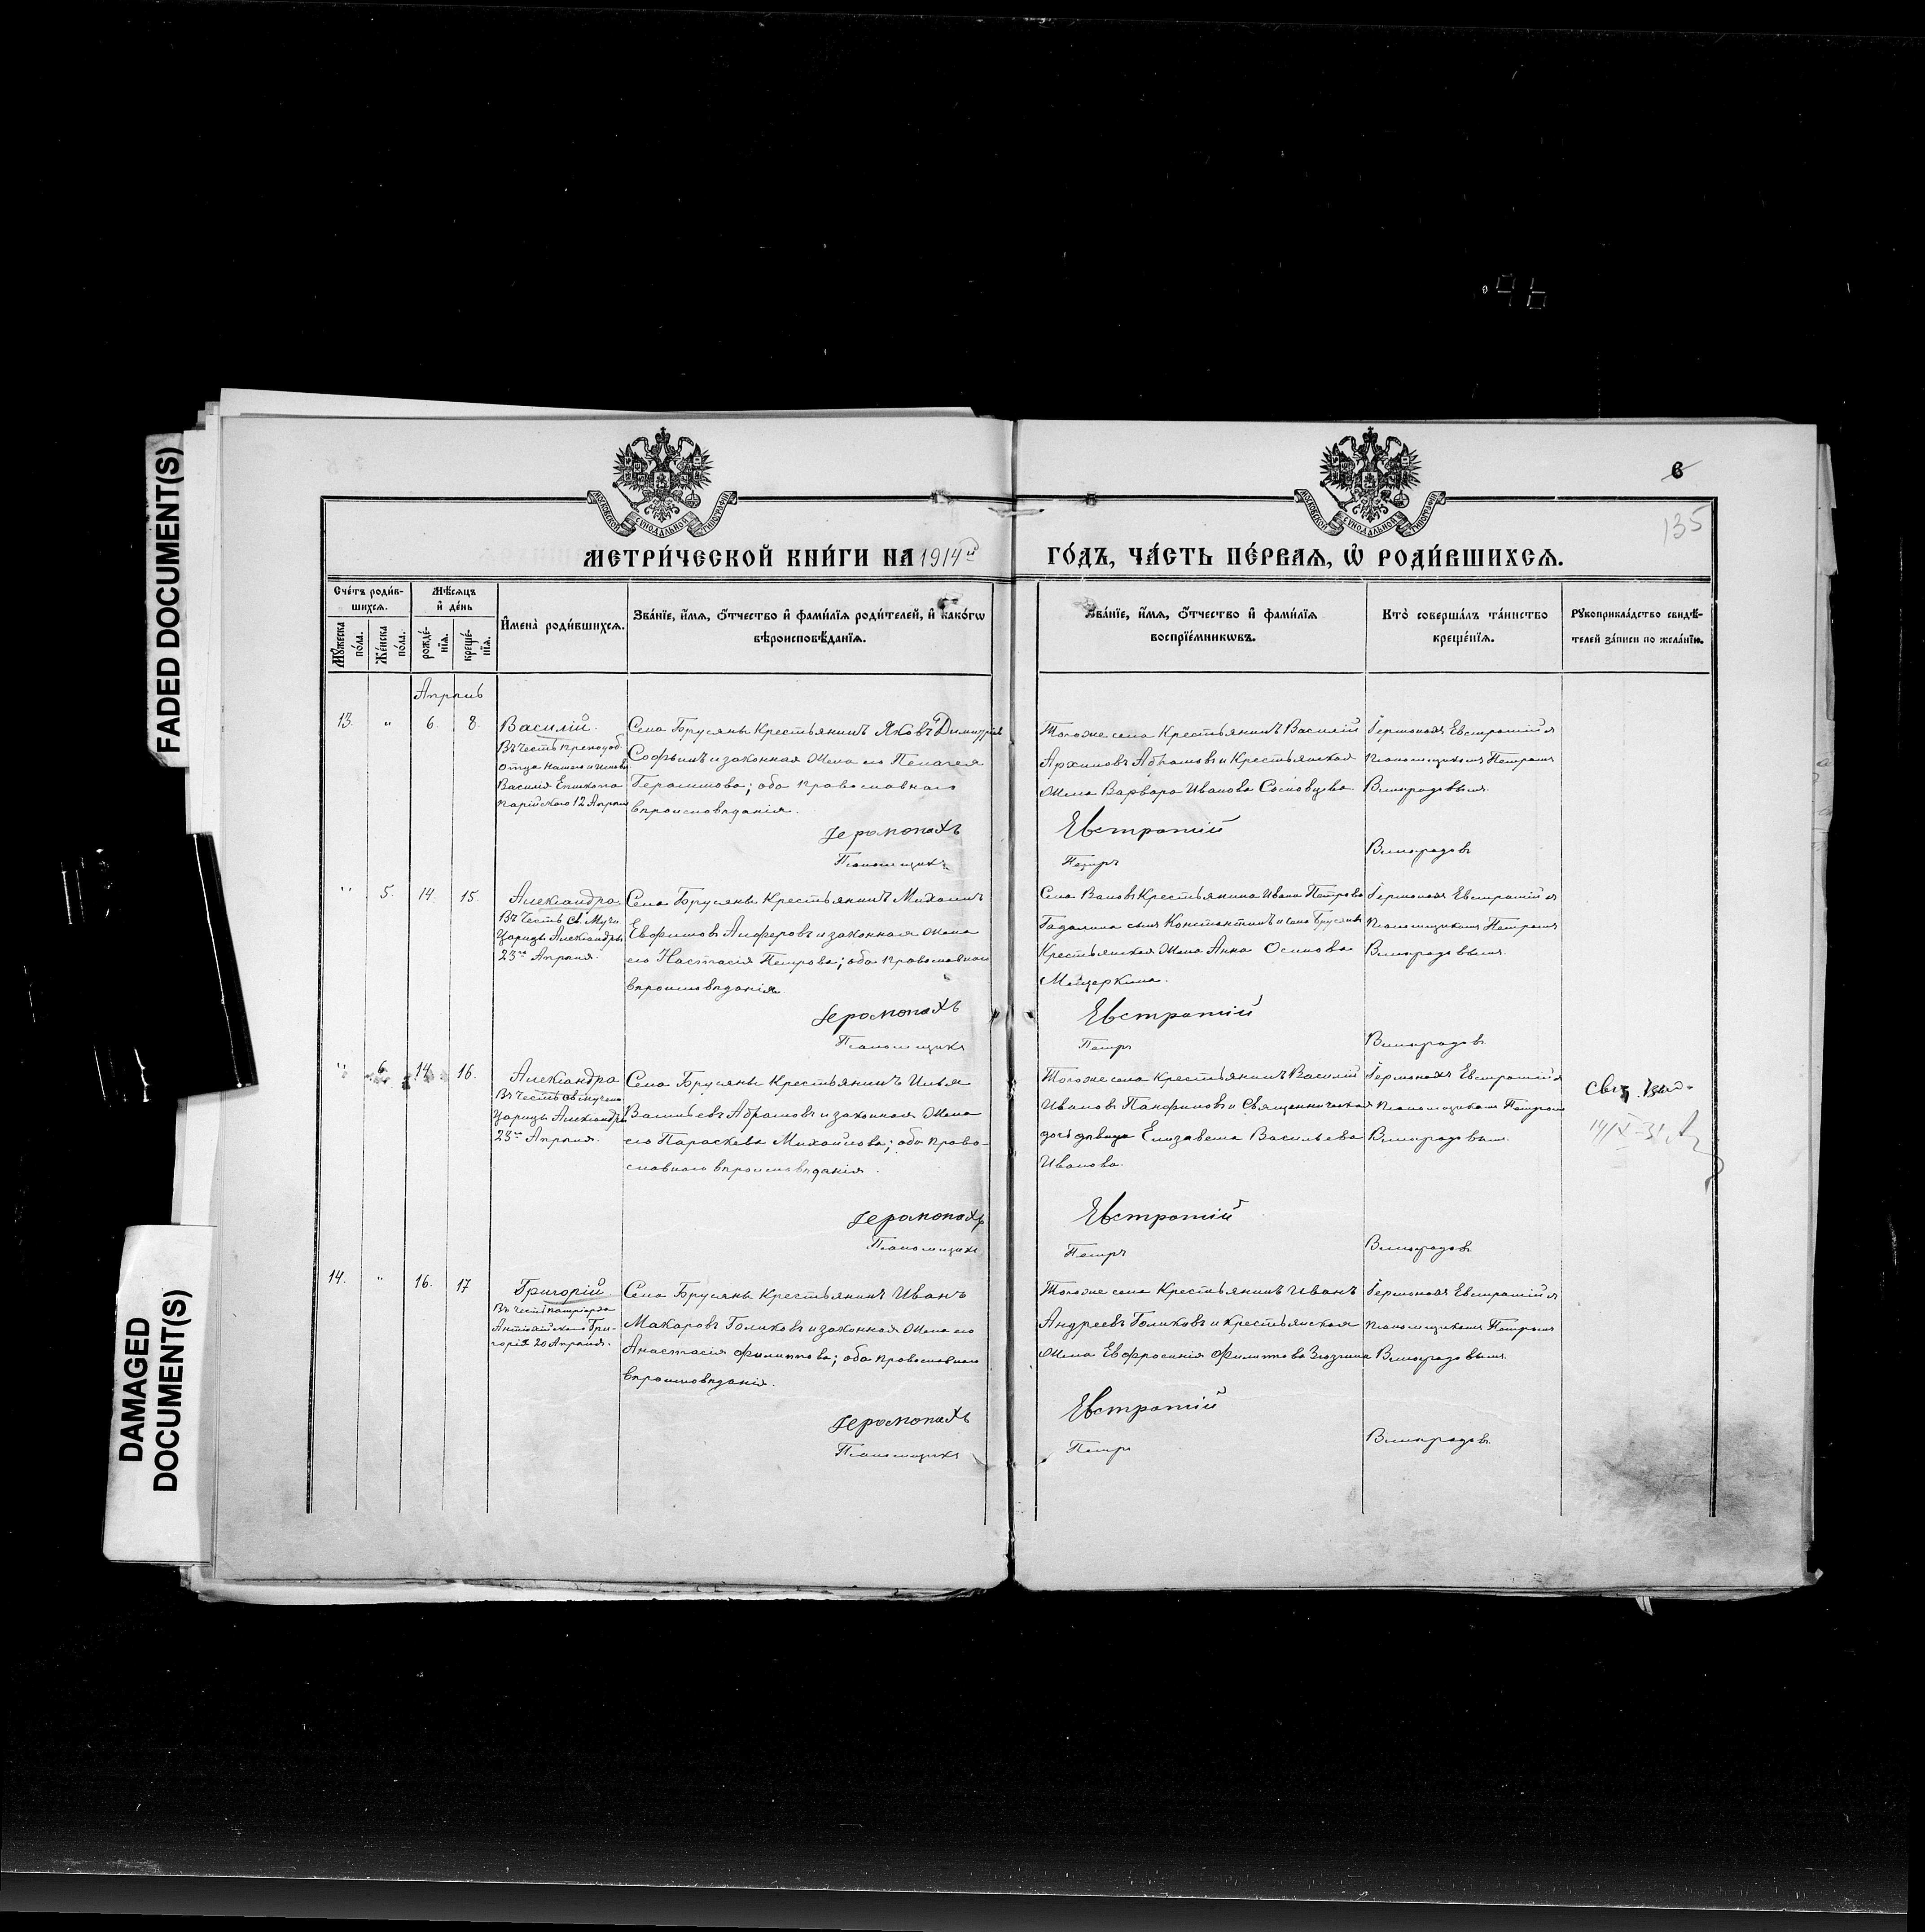 FADED DOCUMENT(S)
DAMAGED
DOCUMENT(S)
6
135
МОСКОВСКОЙ СѴНОДАЛЬНОЙ ТИПОГРАФІИ
МОСКОВСКОЙ СѴНОДАЛЬНОЙ ТИПОГРАФІИ
МЕТРИ́ЧЕСКОЙ КНИ́ГИ НА 1914й ГО́ДЪ, ЧА́СТЬ ПЕ́РВАЯ, Ѡ РОДИ́ВШИХСЯ.
Сче́тъ роди́в-
шихся.
Мꙋ́жеска по́ла.
Же́нска по́ла.
Мѣ́сяцъ
и҆ де́нь
рожде́-
нїѧ.
креще́-
нїѧ.
И҆мена̀ роди́вшихсѧ.
Зва́нїе, и҆́мѧ, ѻ҆́тчество и҆ фами́лїѧ роди́телей, и҆ како́гѡ
вѣроисповѣ́данїѧ.
Зва́нїе, и҆́мѧ, ѻ҆́тчество и҆ фами́лїѧ
воспрїе́мникѡвъ.
Кто̀ соверша́лъ та́инство
креще́нїѧ.
Рꙋкоприкла́дство свидѣ́-
телей за́писи по жела́нїю.
Апрѣль
13. " 6. 8.
Василій.
Въ честь преподоб.
Отца нашего и исповѣд.
Василія Епископа
Парійскаго 12 Апрѣля
Села Брусяны Крестьянинъ Яковъ Димитріевъ
Софьинъ и законная жена его Пелагея
Герасимова; оба православнаго
вѣроисповѣданія.
Тогоже села Крестьянинъ Василій
Архиповъ Абрамовъ и крестьянская
жена Варвара Иванова Сосновцева
Іермонахъ Евстратій съ
псаломщикомъ Петромъ
Виноградовымъ.
Іеромонахъ Евстратій
Псаломщикъ Петръ Виноградовъ
" 5. 14. 15.
Александра
Въ честь св. Муч.
Царицы Александры
23го Апрѣля.
Села Брусяны Крестьянинъ Михаилъ
Евфимовъ Алферовъ и законная жена
его Настасія Петрова; оба православнаго
вѣроисповѣданія
Села Крестьянина Ивана Петрова
сынъ Константинъ и села Брусянъ
Крестьянская жена Анна Осипова
Мещеркина.
Іермонахъ Евстратій съ
псаломщикомъ Петромъ
Виноградовымъ.
Іеромонахъ Евстратій
Псаломщикъ Петръ Виноградовъ
" 6. 14. 16.
Александра
Въ честь св. мучен.
Царицы Александры
23го Апрѣля.
Села Брусяны Крестьянинъ Илья
Васильевъ Абрамовъ и законная жена
его Параскева Михайлова; оба право-
славнаго вѣроисповѣданія.
Тогоже села Крестьянинъ Василій
Ивановъ Панфиловъ и Священническая
дочь дѣвица Елизавета Васильева
Иванова.
Іермонахъ Евстратій съ
псаломщикомъ Петромъ
Виноградовым.
Іеромонахъ Евстратій
Псаломщикъ Петръ Виноградовъ
14. " 16. 17
Григорій.
Въ честь патріарха
Антіохійскаго Гри-
горія 20 Апрѣля.
Села Брусяны Крестьянинъ Иванъ
Макаровъ Голиковъ и законная жена его
Анастасія Филиппова; оба православнаго
вѣроисповѣданія.
Тогоже села Крестьянинъ Иванъ
Андреевъ Голиковъ и крестьянская
жена Евфросинія Филиппова Зюзина
Іермонахъ Евстратій съ
псаломщикомъ Петромъ
Виноградовымъ.
Іеромонахъ Евстратій
Псаломщикъ Петръ Виноградовъ